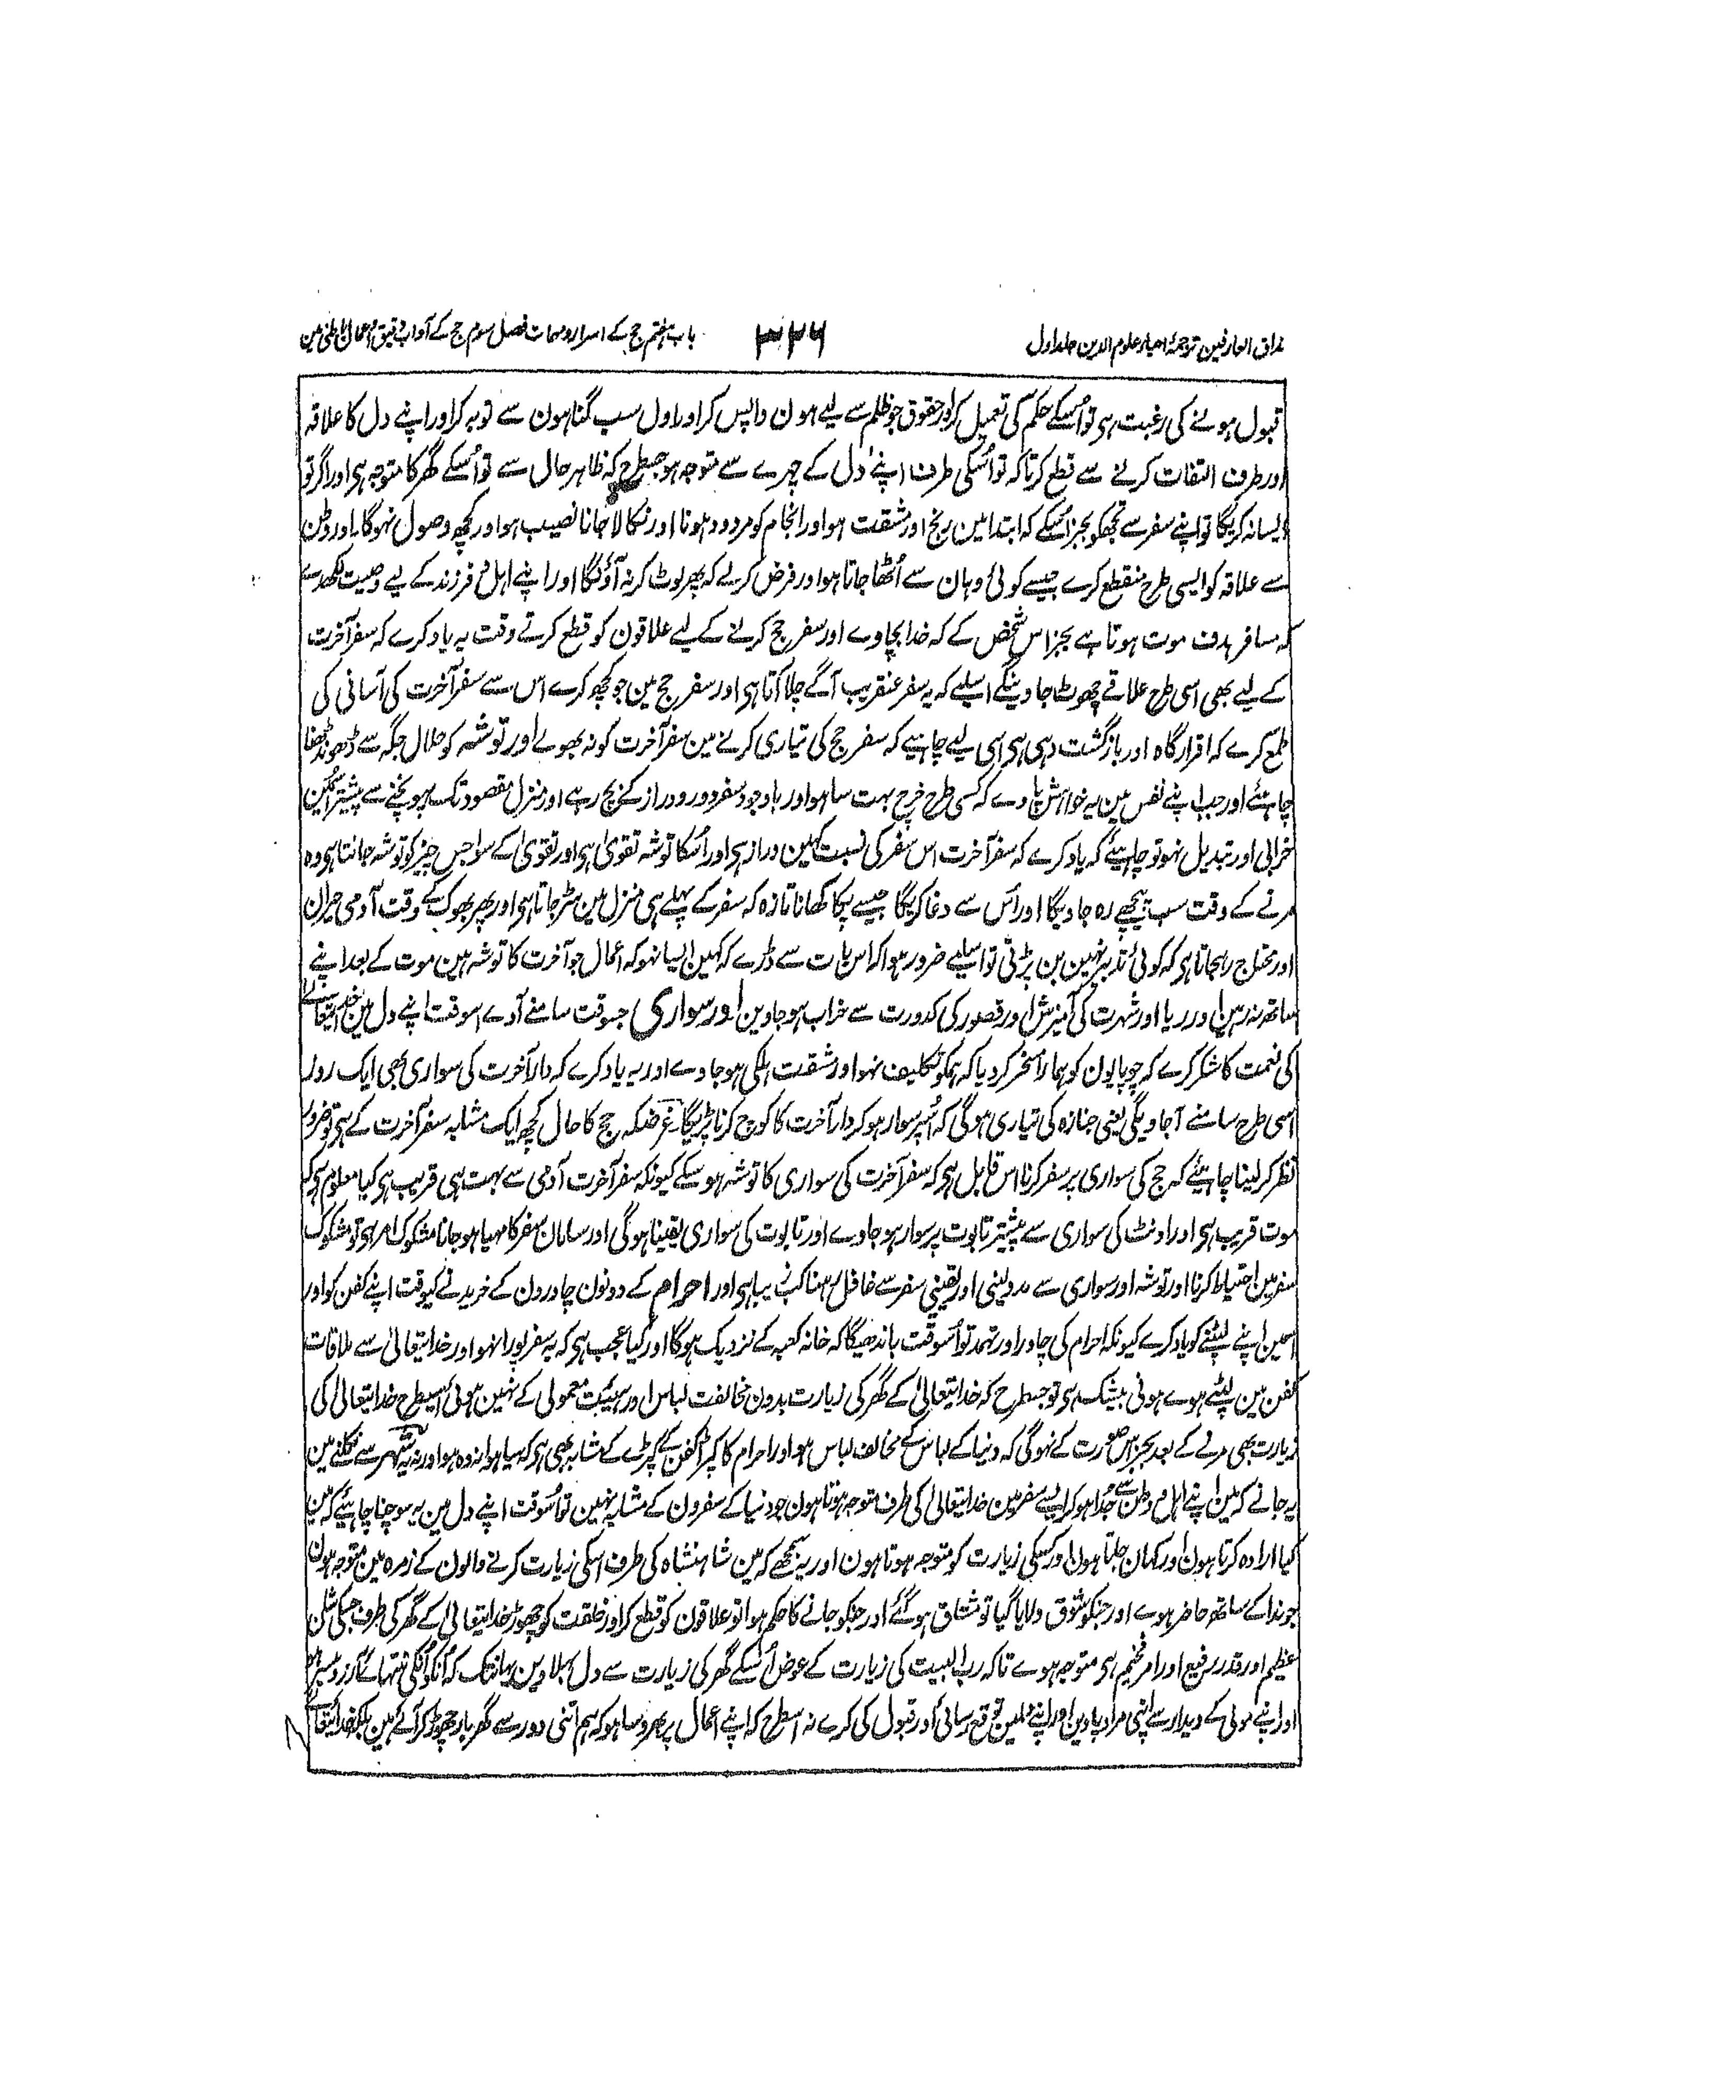 مذاق العارفین ترجمۂ احیاء علوم الدین جلد اول
۳۲۶
باب ہفتم حج کے اسرار و مہمات فصل سوم حج کے آداب دقیق و اعمال باطنی مین
قبول ہونے کی رغبت ہی تو اُسکے حکم کی تعمیل کر اور حقوق جو ظلم سے لیے ہون واپس کر اور اول سب گناہون سے توبہ کر اور اپنے دل کا علاقہ
اور طرف التفات کرنے سے قطع کر تاکہ تو اُسکی طرف اپنے دل کے چہرے سے متوجہ ہو جسطرح کہ ظاہر حال سے تو اُسکے گھر کا متوجہ ہی اور اگر تو
ایسا نہ کریگا تو اپنے سفر سے تجھکو بجز اُسکے کہ ابتدا مین رنج اور مشقت ہو اور انجام کو مردود ہونا اور نکالا جانا نصیب ہو اور کچھ وصول نہوگا۔ اور وطن
سے علاقہ کو ایسی طرح منقطع کرے جیسے کوئی وہان سے اُٹھا جاتا ہو اور فرض کرلے کہ پھر لوٹ کر نہ آؤنگا اور اپنے اہل و فرزند کے لیے وصیت لکھدے
کہ مسافر ہدف موت ہوتا ہے بجز اس شخص کے کہ خدا بچاوے اور سفر حج کرنے کے لیے علاقون کو قطع کرتے وقت یہ یاد کرے کہ سفر آخرت
کے لیے بھی اسی طرح علاقے چھوٹا جاوینگے اسلیے کہ یہ سفر عنقریب آگے چلا آتا ہی اور سفر حج مین جو کچھ کرے اس سے سفر آخرت کی آسانی کی
طمع کرے کہ اقرار گاہ اور بازگشت وہی ہی اسی لیے چاہیے کہ سفر حج کی تیاری کرنے مین سفر آخرت کو نہ بھولے اور توشہ کو حلال جگہ سے ڈھونڈھنا
چاہئے اور جب اپنے نفس مین یہ خواہش پاوے کہ کسی طرح خرچ بہت سا ہو اور باوجود سفر دور و دراز کے بچ رہے اور منزل مقصود تک پہونچنے سے پیشتر اُسمین
خرابی اور تبدیل نہو تو چاہیئے کہ یاد کرے کہ سفر آخرت اس سفر کی نسبت کہین دراز ہی اور اُسکا توشہ تقویٰ ہی اور تقویٰ کے سوا جس چیز کو توشہ جانتا ہی وہ
مرنے کے وقت سب پیچھے رہ جاویگا اور اُس سے دغا کریگا جیسے پکا کھانا تازہ کہ سفر کے پہلے ہی منزل مین سڑ جاتا ہی اور پھر بھوک کے وقت آدمی حیران
اور محتاج رہجاتا ہی کہ کوئی تدبیر نہین بن پڑتی تو اسلیے ضرور ہوا کہ اس بات سے ڈرے کہ کہین ایسا نہو کہ اعمال جو آخرت کا توشہ ہین موت کے بعد اپنے
ساتھ نہ رہین اور ریا اور شہرت کی آمیزش اور قصور کی کدورت سے خراب ہو جاوین اور سواری جسوقت سامنے آوے اسوقت اپنے دل مین خدایتعالےٰ
کی نعمت کا شکر کرے کہ چوپایون کو ہمارا مسخر کر دیا کہ ہمکو تکلیف نہو اور مشقت ہلکی ہو جاوے اور یہ یاد کرے کہ دار آخرت کی سواری بھی ایک روز
اسی طرح سامنے آجاویگی یعنی جنازہ کی تیاری ہوگی کہ اُسپر سوار ہو کر دار آخرت کا کوچ کرنا پڑیگا غرضکہ حج کا حال کچھ ایک مشابہ سفر آخرت کے ہی تو ضرور
نظر کر لینا چاہیئے کہ حج کی سواری پر سفر کرنا اس قابل ہی کہ سفر آخرت کی سواری کا توشہ ہوسکے کیونکہ سفر آخرت آدمی سے بہت ہی قریب ہی کیا معلوم ہی کہ
موت قریب ہی اور اونٹ کی سواری سے پیشتر تابوت پر سوار ہو جاوے اور تابوت کی سواری یقینا ہوگی اور سامان سفر کا مہیا ہو جانا مشکوک امر ہی تو مشکوک
سفر مین احتیاط کرنا اور توشہ اور سواری سے مدد لینی اور یقینی سفر سے غافل رہنا کب زیبا ہی اور احرام کے دونون چادرون کے خریدنے کیوقت اپنے کفن کو اور
اسمین اپنے لپٹنے کو یاد کرے کیونکہ احرام کی چادر اور تہمد تو اُسوقت باندھیگا کہ خانہ کعبہ کے نزدیک ہوگا اور کیا عجب ہی کہ یہ سفر پورا نہو اور خدایتعالیٰ سے ملاقات
کفن مین لپٹے ہوے ہونی بیشک ہی تو جسطرح کہ خدایتعالیٰ کے گھر کی زیارت بدون مخالفت لباس اور ہیئت معمولی کے نہین ہوئی اُسیطرح خدایتعالیٰ کی
زیارت بھی مرنے کے بعد بجز اس صورت کے نہوگی کہ دنیا کے لباس کے مخالف لباس ہو اور احرام کا کپڑا کفن کے کپڑے کے مشابہ بھی ہی کہ سیا ہوا نہ وہ ہو اور نہ یہ شہر سے نکلنے مین
یہ جانے کہ مین اپنے اہل و وطن سے جُدا ہو کر ایسے سفر مین خدایتعالیٰ کی طرف متوجہ ہوتا ہون جو دنیا کے سفرون کے مشابہ نہین تو اُسوقت اپنے دل مین یہ سوچنا چاہیئے کہ مین
کیا ارادہ کرتا ہون اور کہان چلتا ہون اور کسکی زیارت کو متوجہ ہوتا ہون اور یہ سمجھے کہ مین شاہنشاہ کی طرف اسکی زیارت کرنے والون کے زمرہ مین متوجہ ہون
جو ندا کے ساتھ حاضر ہوے اور جنکو شوق دلایا گیا تو مشتاق ہو گئے اور جنکو جانے کا حکم ہوا تو علاقون کو قطع کر اور خلقت کو چھوڑ خدایتعالیٰ کے گھر کی طرف جسکی شان
عظیم اور قدر رفیع اور امر فخیم ہی متوجہ ہوے تاکہ رب البیت کی زیارت کے عوض اُسکے گھر کی زیارت سے دل بہلاوین یہانتک کہ اُنکو اُنکی منتہائے آرزو میسر ہو
اور اپنے مولیٰ کے دیدار سے اپنی مراد پاوین اور اپنے دلمین توقع رسائی اور قبول کی کرے نہ اسطرح کہ اپنے اعمال پر بھروسا ہو کہ ہم اتنی دور سے گھر بار چھوڑ کر آئے ہین بلکہ خدایتعالےٰ